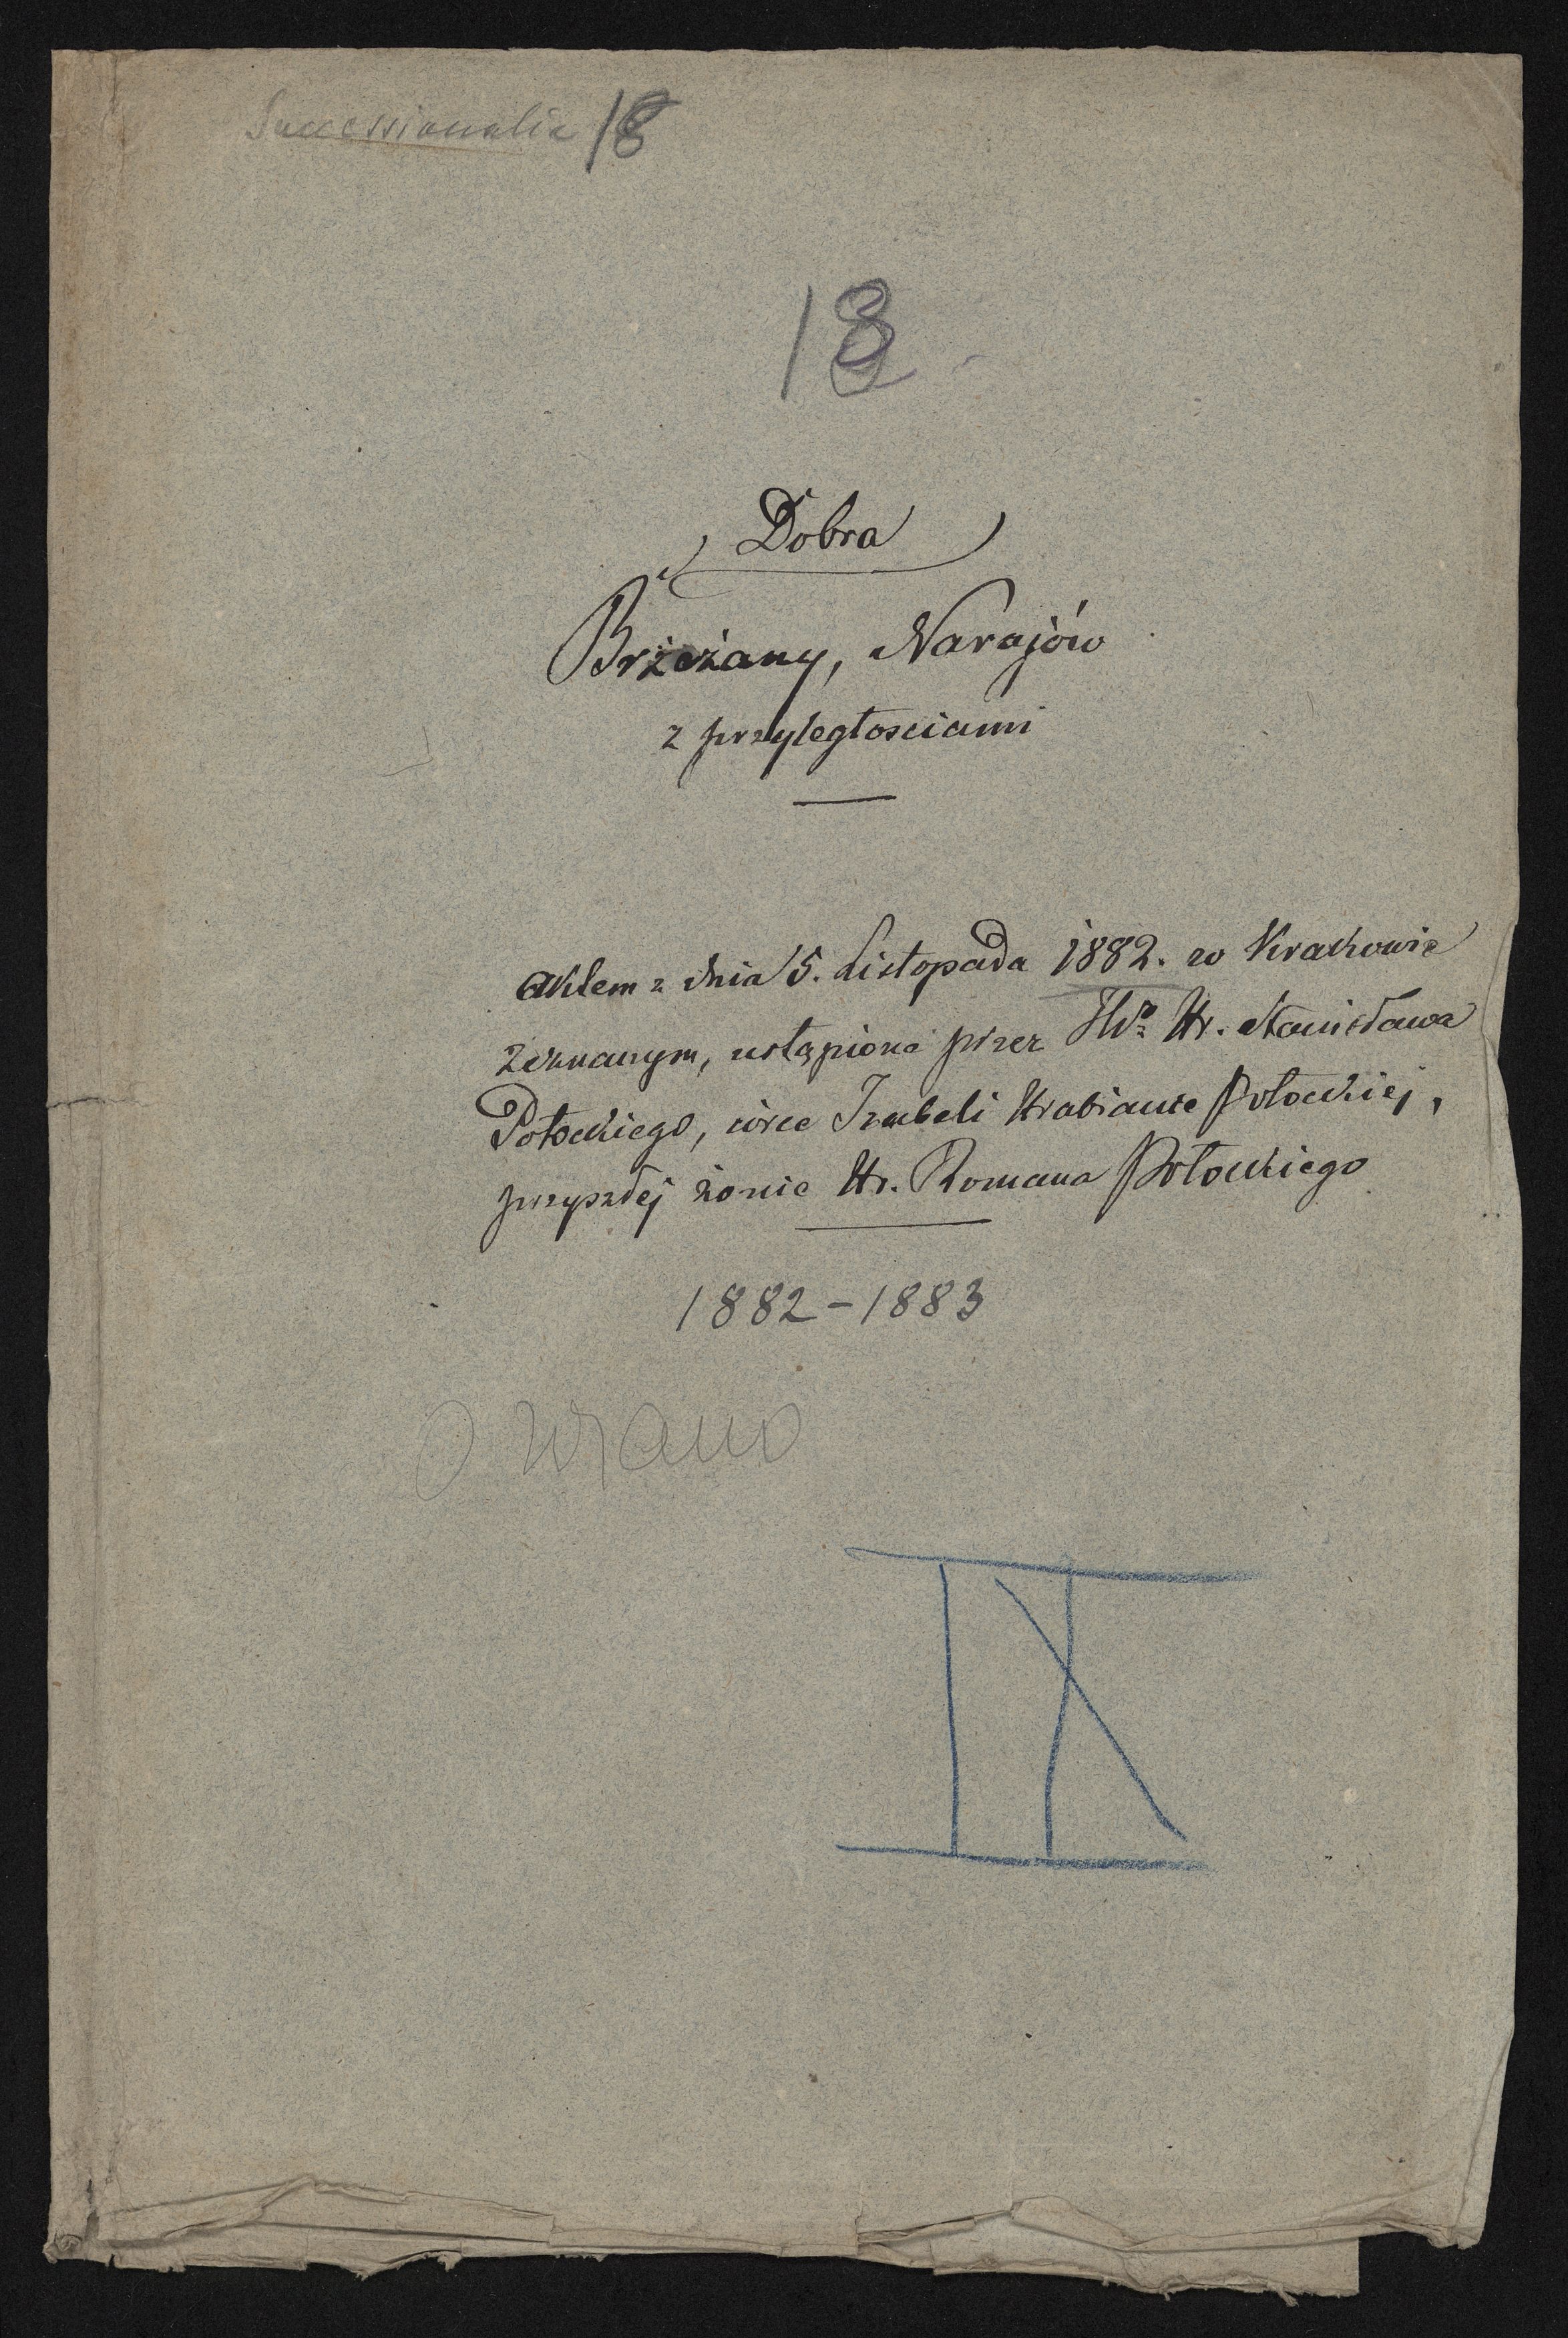 Successionalia 18
18
Dobra
Brzeżany, Narajów
z przyległosciami
Aktem z dnia 5. Listopada 1882. w Krakowie
zeznanym, ustąpione przez JWº Hr. Stanisława
Potockiego, córce Izabeli Hrabiance Potockiej,
przyszłej żonie Hr. Romana Potockiego
1882-1883
IX